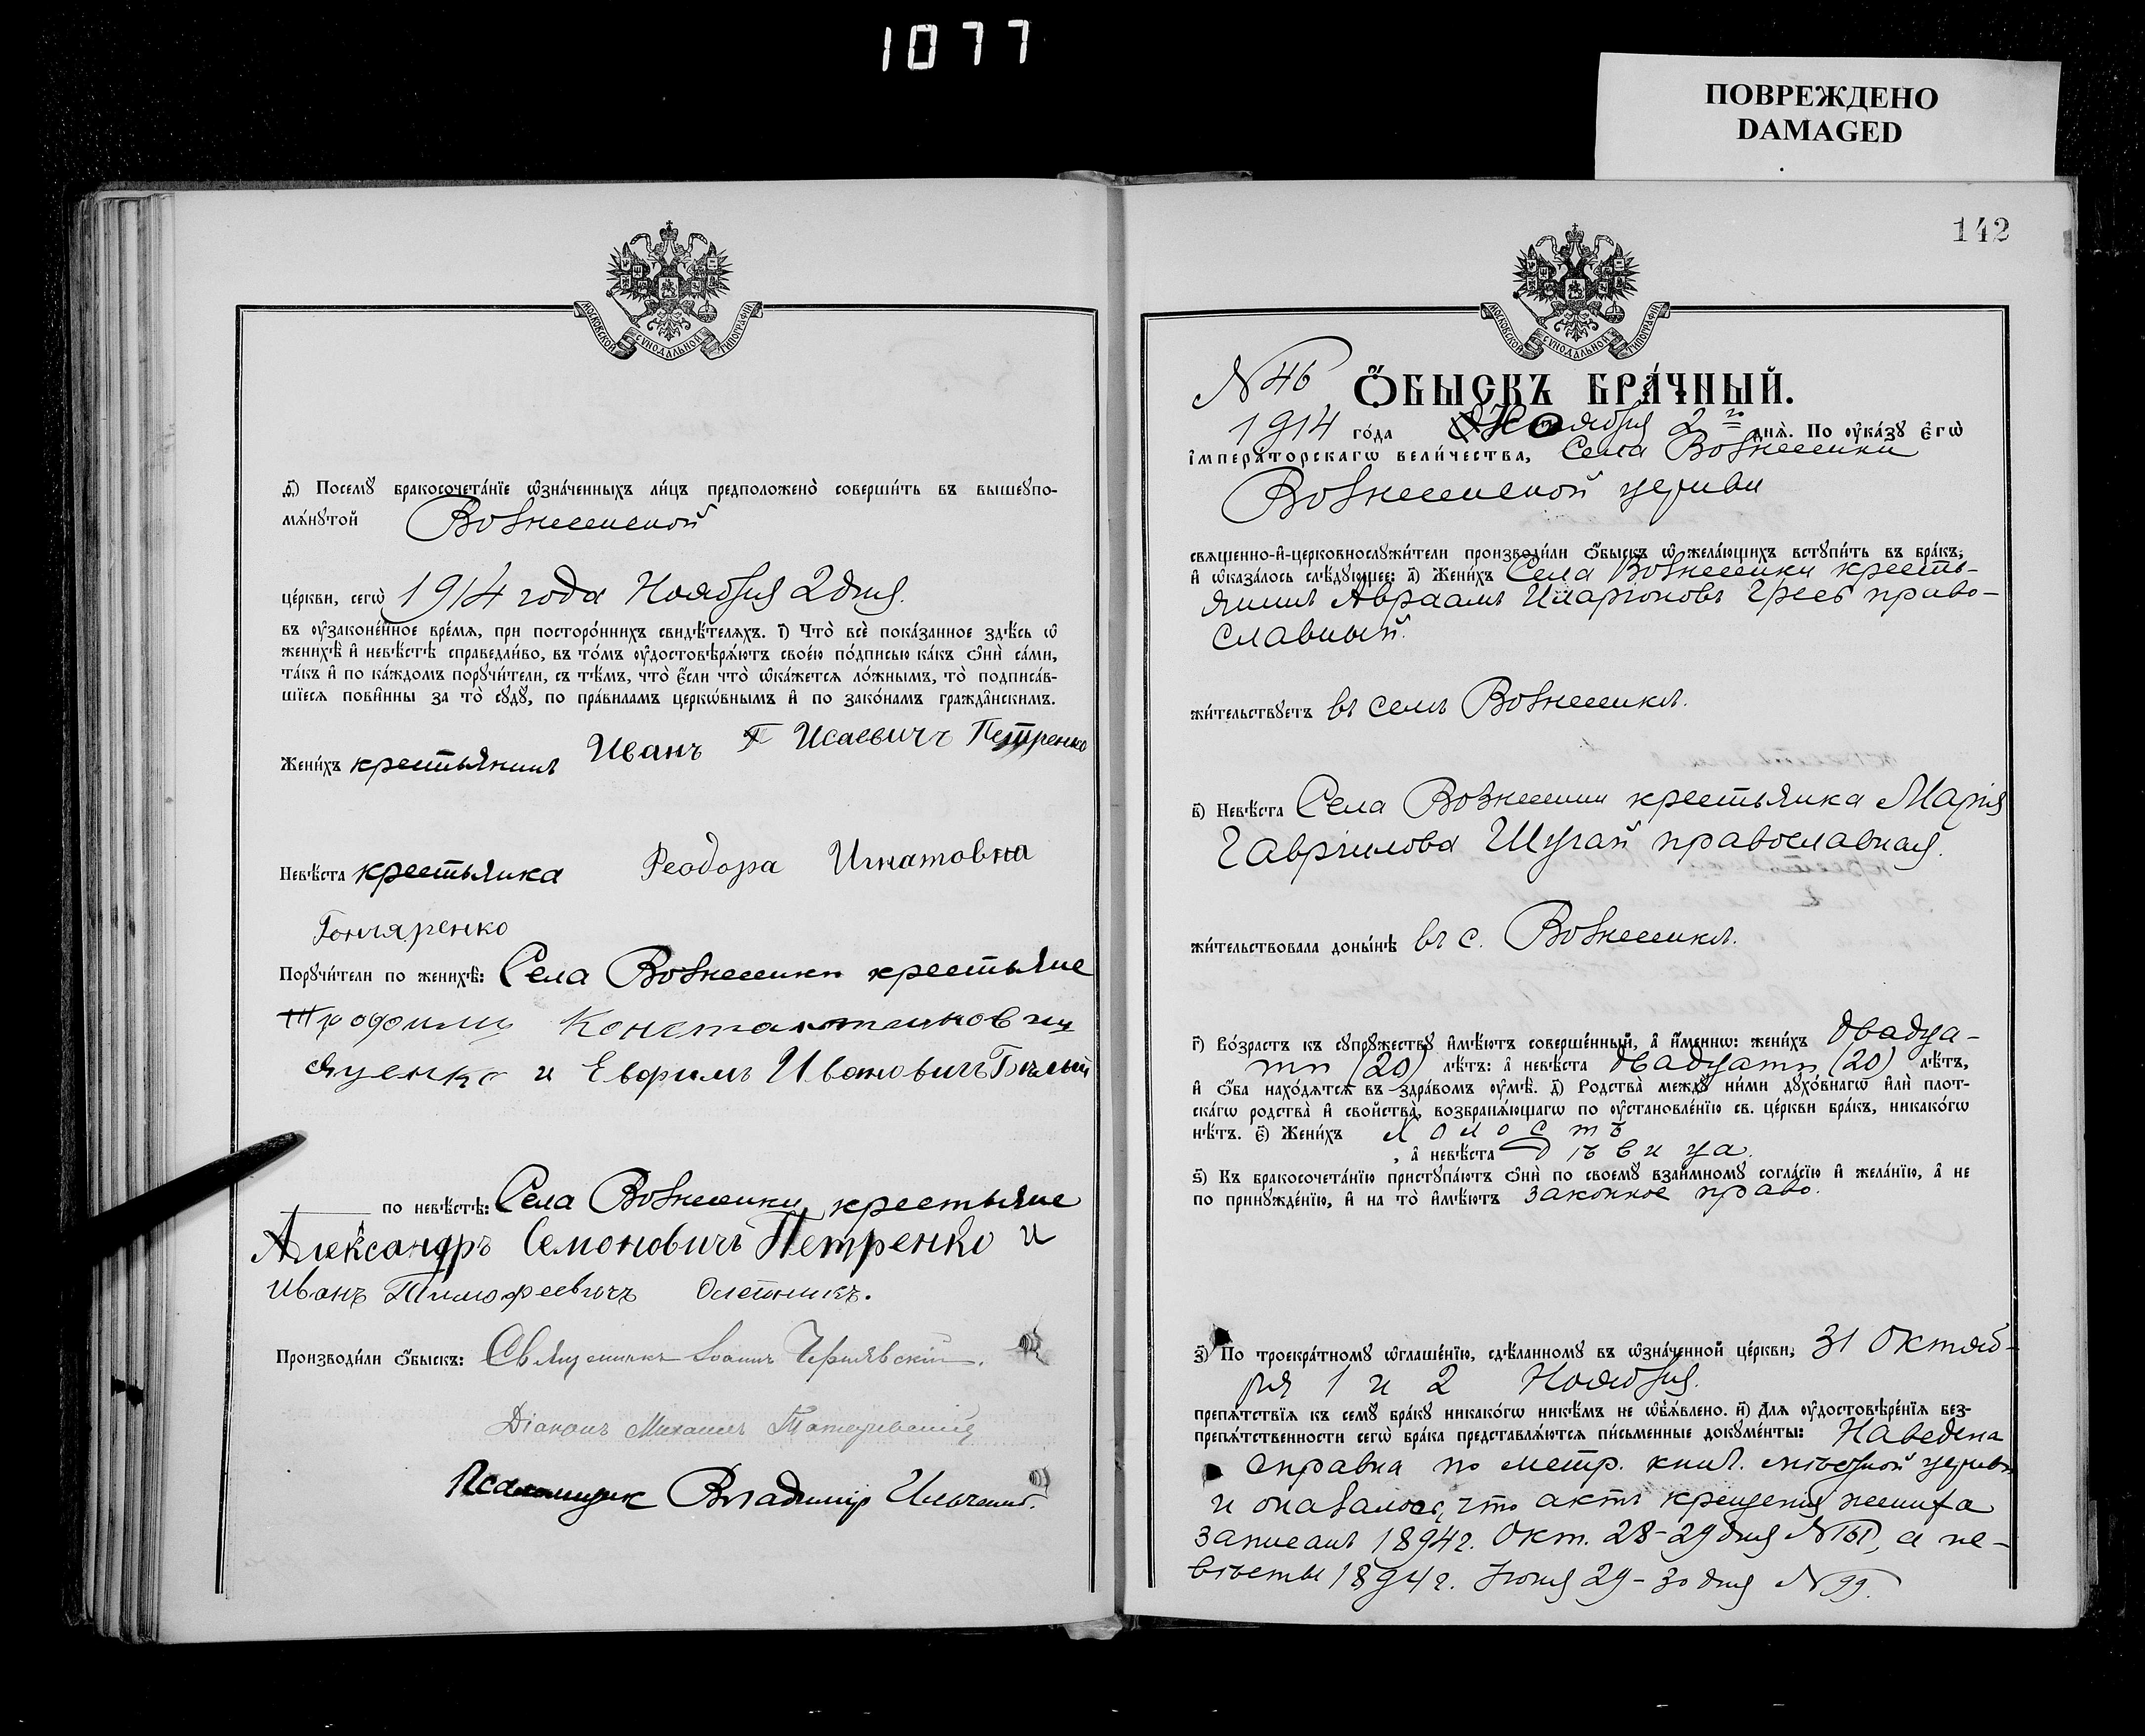 1077
ПОВРЕЖДЕНО
DAMAGED
МОСКОВСКОЙ СѴНОДАЛЬНОЙ ТИПОГРАФІИ
ѳ҃) Посемꙋ̀ бракосочета́нїе ѡ҆зна́ченныхъ ли́цъ предположено̀ соверши́ть въ вышеупо-
мѧ́нꙋтой Вознесенской
це́ркви, сегѡ̀ 1914 года Ноября 2 дня.
въ оу҆законе́нное вре́мѧ, при посторо́ннихъ свидѣ́телѧхъ. і҃) Что̀ всѐ пока́занное здѣ́сь ѡ҆
женихѣ̀ и҆ невѣ́стѣ справедли́во, въ то́мъ оу҆достовѣрѧ́ютъ свое́ю по́дписью ка́къ ѻ҆нѝ са́ми,
та́къ и҆ по ка́ждомъ порꙋчи́тели, съ тѣ́мъ, что̀ є҆́сли что̀ ѡ҆ка́жетсѧ ло́жнымъ, то̀ подписа́в-
шїесѧ пови́нны за то̀ сꙋдꙋ̀, по пра́виламъ церкѡ́внымъ и҆ по зако́намъ гражда̂нскимъ.
Жени́хъ крестьянинъ Иванъ Исаевичъ Петренко
Невѣ́ста крестьянка Феодора Игнатовна
Гончаренко
Порꙋчи́тели по женихѣ̀: Села Вознесенки крестьяне
Константинович
Яценко и Евфимъ Ивановичъ Бѣлый
по невѣ́стѣ: Села Вознесенки крестьяне
Александръ Семоновичъ Петренко и
Иванъ Тимофеевичъ
Производи́ли ѻ҆́быскъ: Священникъ Іоаннъ Чернявскій.
Діаконъ Михаилъ
Псаломщик Владимір
142
МОСКОВСКОЙ СѴНОДАЛЬНОЙ ТИПОГРАФІИ
N 46 Ѻ҆́БЫСКЪ БРА́ЧНЫЙ.
1914 го́да Ноября 2го днѧ̀. По оу҆ка́зꙋ Є҆гѡ̀
І҆мпера́торскагѡ вели́чества, Села Вознесенки
Вознесенской церкви
свѧще́нно-и҆-церковнослꙋжи́тели производи́ли ѻ҆́быскъ ѡ҆ жела́ющихъ встꙋпи́ть въ бра́къ,
и҆ ѡ҆каза́лось слѣ́дꙋющее: а҃) Жени́хъ Села Вознесенки кресть-
янинъ Авраамъ Иларіоновъ Гресь право-
славный.
жи́тельствꙋетъ въ селѣ Вознесенкѣ.
в҃) Невѣ́ста Села Вознесенки крестьянка Марія
Гавріилова Шугай православная.
жи́тельствовала доны́нѣ въ с. Вознесенкѣ.
г҃) Во́зрастъ къ сꙋпрꙋ́жествꙋ и҆мѣ́ютъ соверше́нный, а҆ и҆́меннѡ: жени́хъ двадца-
ти (20) лѣ́тъ: а҆ невѣ́ста двадцати (20) лѣ́тъ,
и҆ ѻ҆́ба нахо́дѧтсѧ въ здра́вомъ оу҆мѣ̀. д҃) Родства̀ междꙋ̀ ни́ми дꙋхо́внагѡ и҆лѝ плот-
ска́гѡ родства̀ и҆ сво́йства, возбранѧ́ющагѡ по оу҆становле́нїю св. це́ркви бра́къ, никако́гѡ
нѣ́тъ. є҃) Жени́хъ холостъ
, а҆ невѣ́ста дѣвица.
ѕ҃) Къ бракосочета́нїю пристꙋпа́ютъ ѻ҆нѝ по своемꙋ̀ взаи́мномꙋ согла́сїю и҆ жела́нїю, а҆ не
по принꙋжде́нїю, и҆ на то̀ и҆мѣ́ютъ законное право.
з҃) По троекра́тномꙋ ѡ҆глаше́нїю, сдѣ́ланномꙋ въ ѡ҆зна́ченной це́ркви, 31 Октяб-
ря 1 и 2 Ноября.
препѧ́тствїѧ къ семꙋ̀ бра́кꙋ никако́гѡ никѣ́мъ не ѡ҆б̾ѧ́влено. и҃) Длѧ оу҆достовѣре́нїѧ без-
препѧ́тственности сегѡ̀ бра́ка представлѧ́ютсѧ пи́сьменные докꙋме́нты: Наведена
справка по метр. книг. мѣстной церкви
и оказалось, что актъ крещенія жениха
записанъ 1894 г. Окт. 28-29 дня, а не-
вѣсты 1894 г. Іюня 29-30 дня N 99.